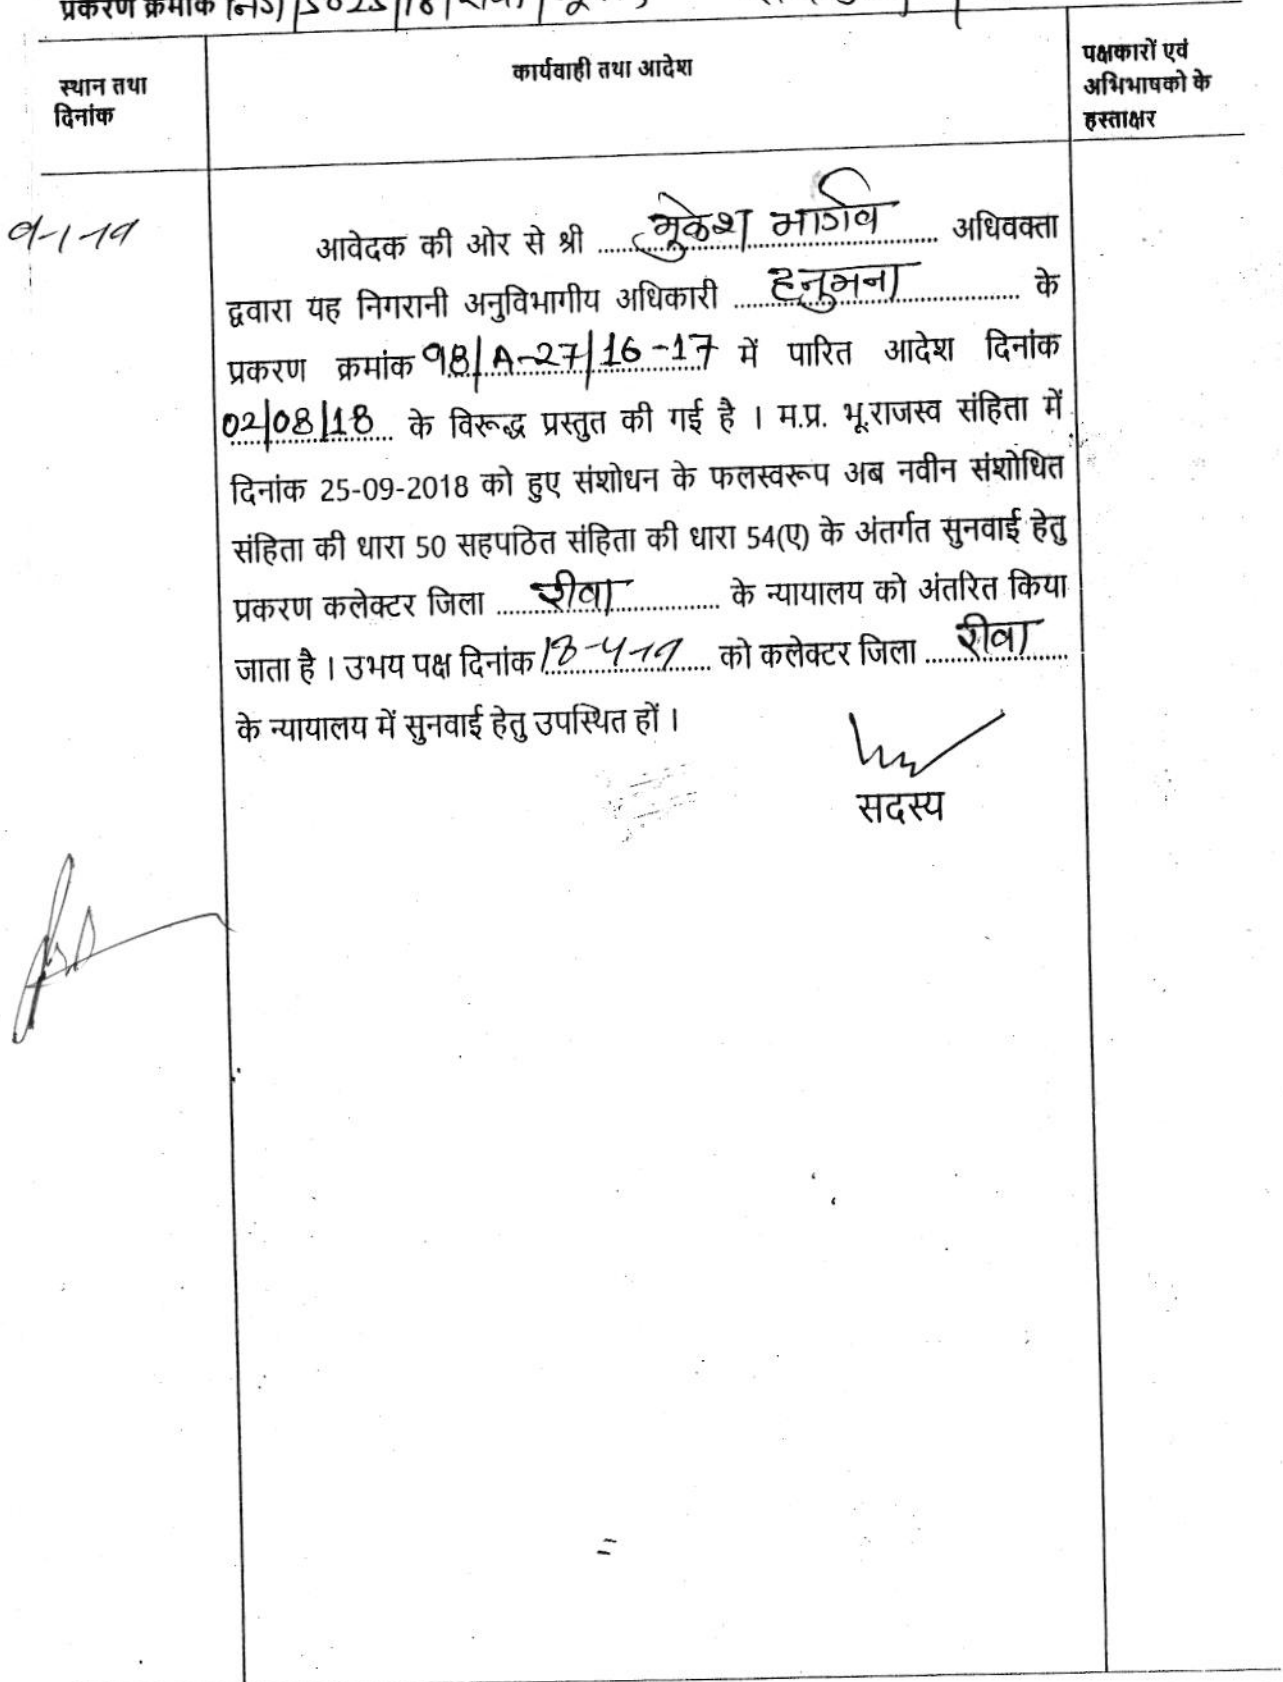 प्रकरण क्रमांक
स्थान तथा
दिनांक
कार्यवाही तथा आदेश
पक्षकारों एवं
अभिभाषको के
हस्ताक्षर
9-1-19
आवेदक की ओर से श्री मुकेश भार्गव अधिवक्ता
द्ववारा यह निगरानी अनुविभागीय अधिकारी हनुमना के
प्रकरण क्रमांक 98/A-27/16-17 में पारित आदेश दिनांक
02/08/18 के विरूद्ध प्रस्तुत की गई है । म.प्र. भू.राजस्व संहिता में
दिनांक 25-09-2018 को हुए संशोधन के फलस्वरूप अब नवीन संशोधित
संहिता की धारा 50 सहपठित संहिता की धारा 54(ए) के अंतर्गत सुनवाई हेतु
प्रकरण कलेक्टर जिला रीवा के न्यायालय को अंतरित किया
जाता है । उभय पक्ष दिनांक को कलेक्टर जिला रीवा
के न्यायालय में सुनवाई हेतु उपस्थित हों ।
सदस्य